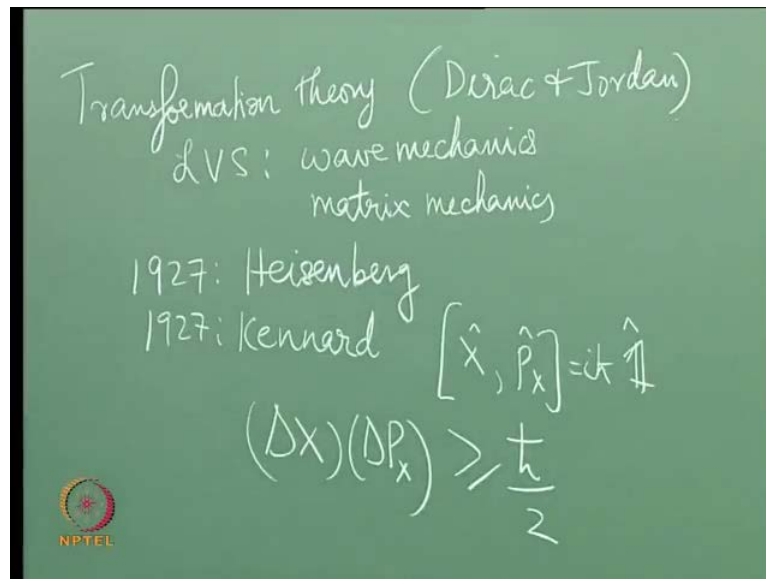 Transformation theory (Dirac & Jordan)
LVS: wave mechanics
matrix mechanics
1927: Heisenberg
1927: Kennard [x̂, p̂ₓ]=iħ 𝟙̂
(Δx)(ΔPₓ) ≥ ħ/2
NPTEL